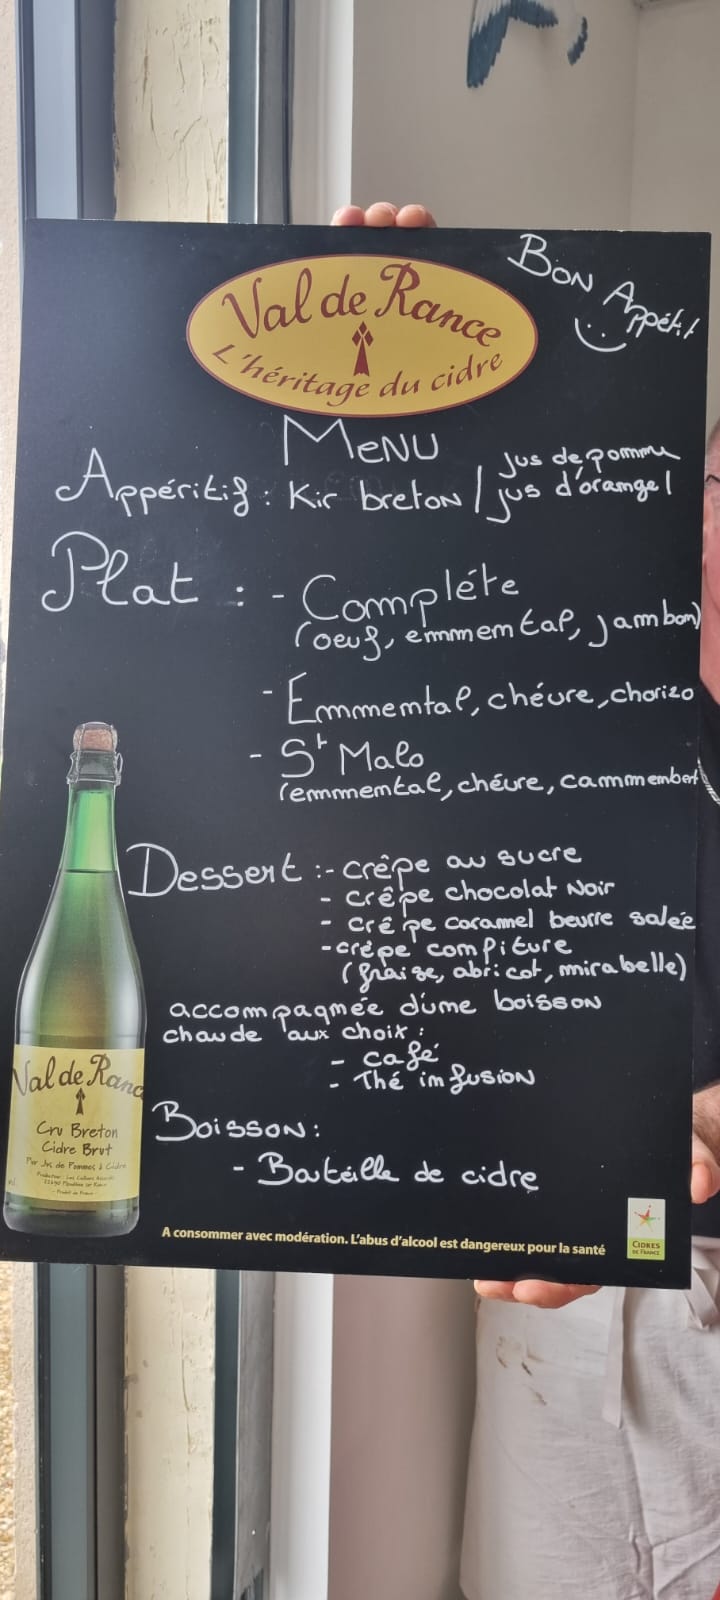 Bon Appétit
Val de Rance
L'héritage du cidre
MeNU
Appéritif : Kir breton / jus de pomme
jus d'orange /
Plat : - Compléte
(oeuf, emmemtal, jambon)
- Emmemtal, chévre, chorizo
- St Malo
(emmemtal, chévre, cammembert
Dessert : - crêpe au sucre
- crêpe chocolat Noir
- crêpe caramel beurre salée
- crêpe comfiture
(fraise, abricot, mirabelle)
accompagmée d'ume boisson
chaude aux choix :
- café
- Thé imfusion
Boisson :
- Boutéille de cidre
Val de Rance
Cru Breton
Cidre Brut
Pur Jus de Pommes à Cidre
- Produit de France -
A consommer avec modération. L'abus d'alcool est dangereux pour la santé
CIDRES
DE FRANCE